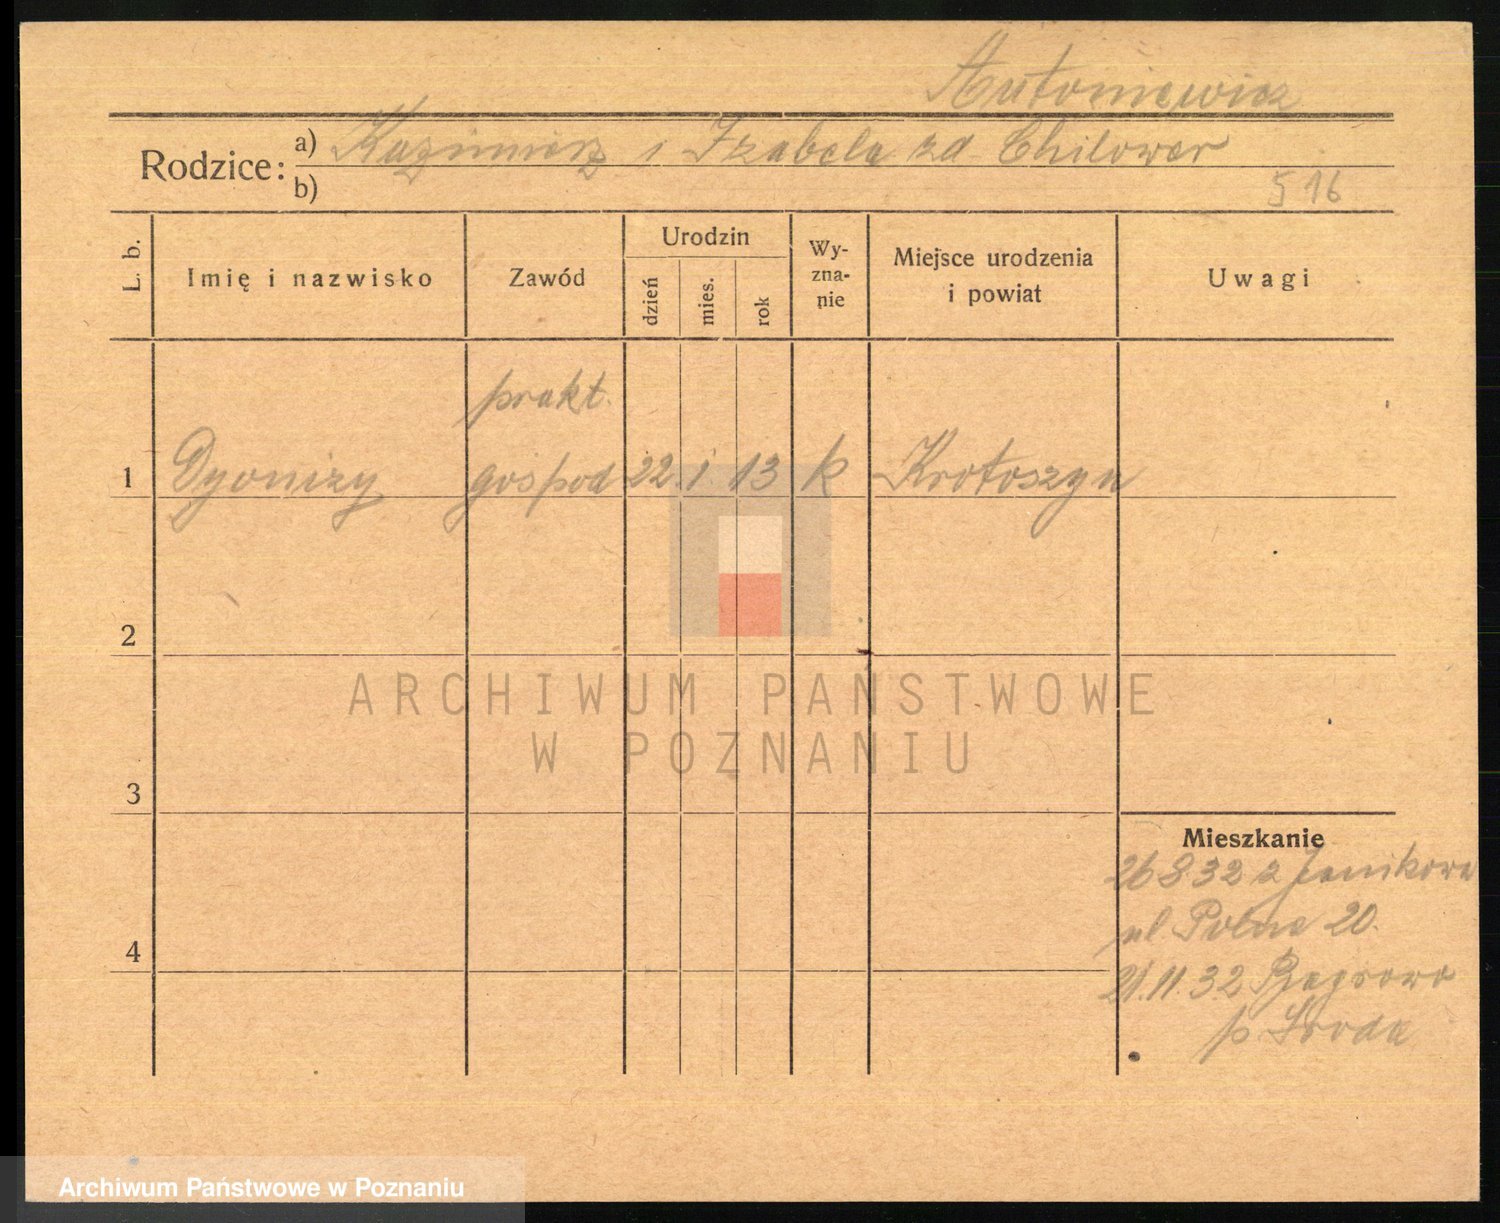 Antoniewicz
Rodzice: a) Kazimierz i Izabela zd. Chilower
b)
§ 16
L. b. Imię i nazwisko Zawód Urodzin dzień mies. rok Wyznanie Miejsce urodzenia i powiat Uwagi
prakt.
1 Dyonizy gospod 22. 1. 13 k Krotoszyn
2
ARCHIWUM PAŃSTWOWE
W POZNANIU
3
Mieszkanie
26 8 32 z Janikowa
ul. Polna 20.
4
21. 11. 32
p. Środa
Archiwum Państwowe w Poznaniu